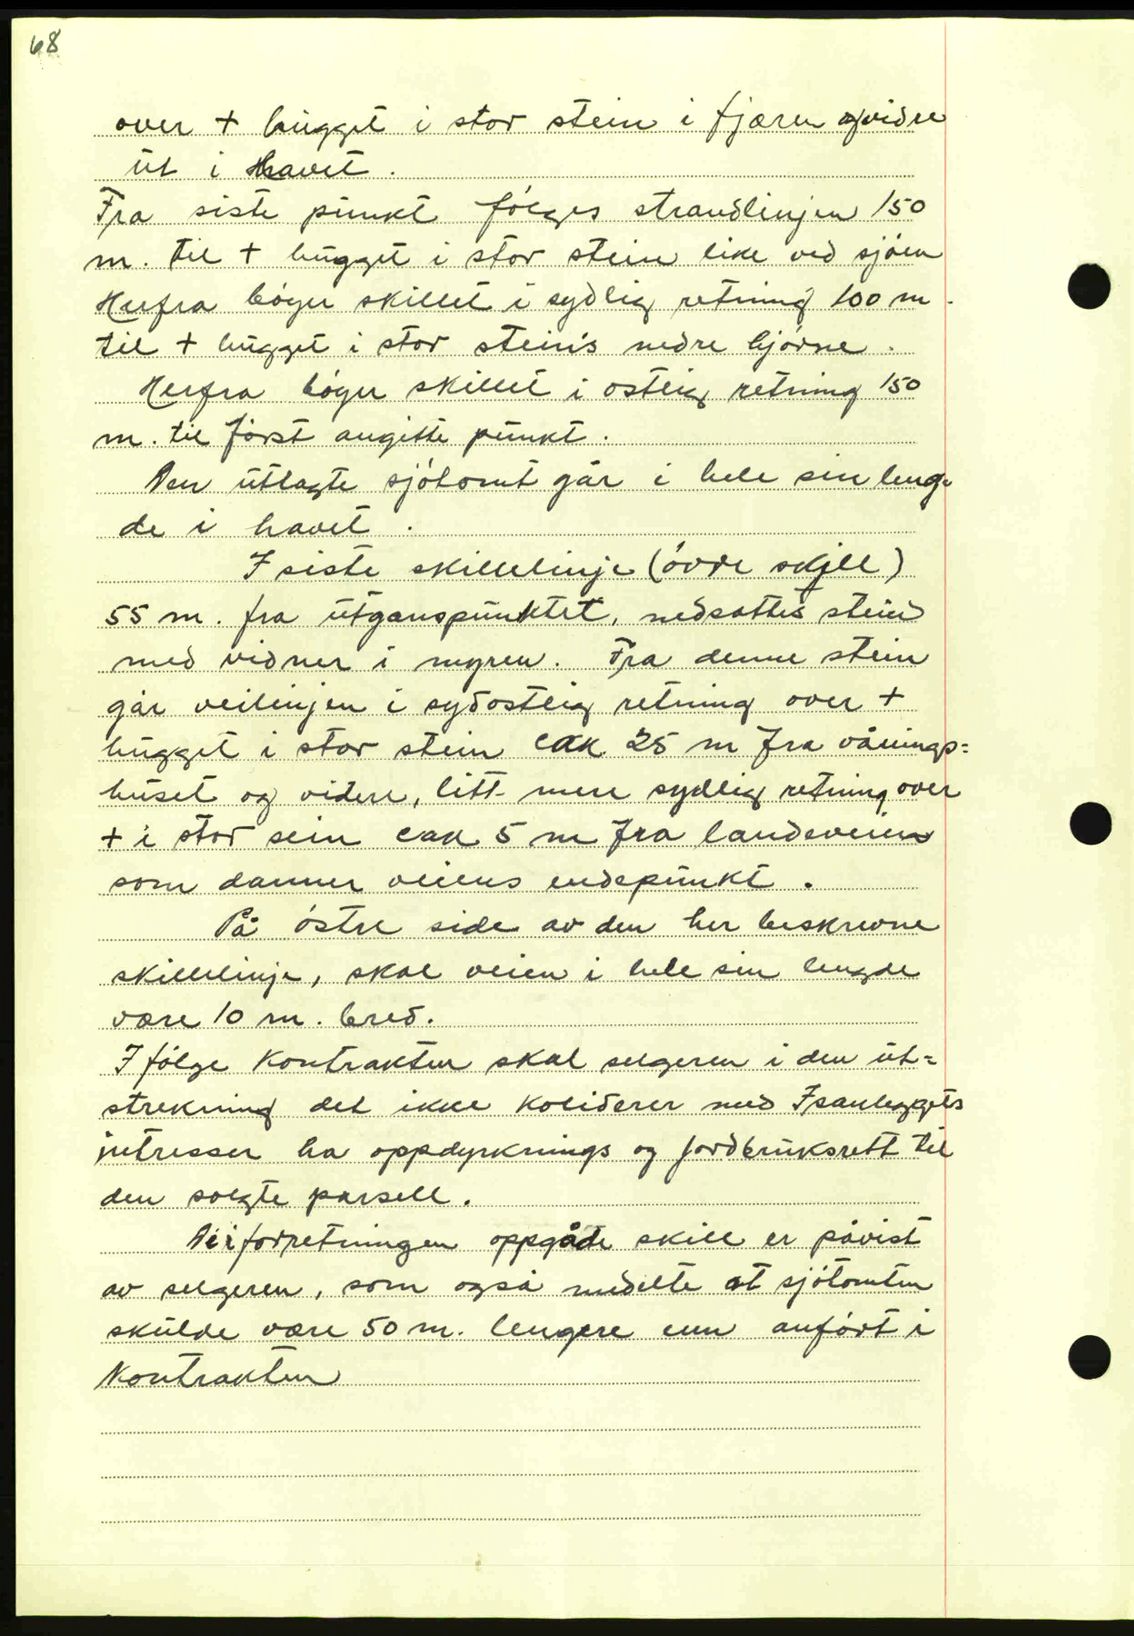 68
over + hugget i stor stein i fjæren og vidre
ut i Havet.
Fra siste punkt følges strandlinjen 150
m. til + hugget i stor stein like ved sjøen
Herfra bøyer skillet i sydlig retning 100 m.
til + hugget i stor stein's nedre hjørne.
Herfra bøyer skillet i ostlig retning 150
m. til først angitte punkt.
Den utlagte sjøtomt går i hele sin leng-
de i havet.
I siste skillelinje (øvre skjell)
55 m. fra utganspunktet, nedsattes stein
med vidner i myren. Fra denne stein
går veilinjen i sydostlig retning over +
hugget i stor stein cak 25 m fra vånings=
huset og videre, litt mere sydlig retning over
+ i stor sein cak 5 m fra landeveien
som danner veiens endepunkt.
På østre side av den her beskrevne
skillelinje, skal veien i hele sin lengde
være 10 m. bred.
I følge Kontrakten skal selgeren i den ut=
strekning det ikke koliderer med Isanleggets
intresser ha oppdyrknings og jordbruksrett til
den solgte parsell.
De i forretningen oppgåde skill er påvist
av selgeren, som også medelte at sjøtomten
skulde være 50 m. lengere enn anført i
Kontrakten